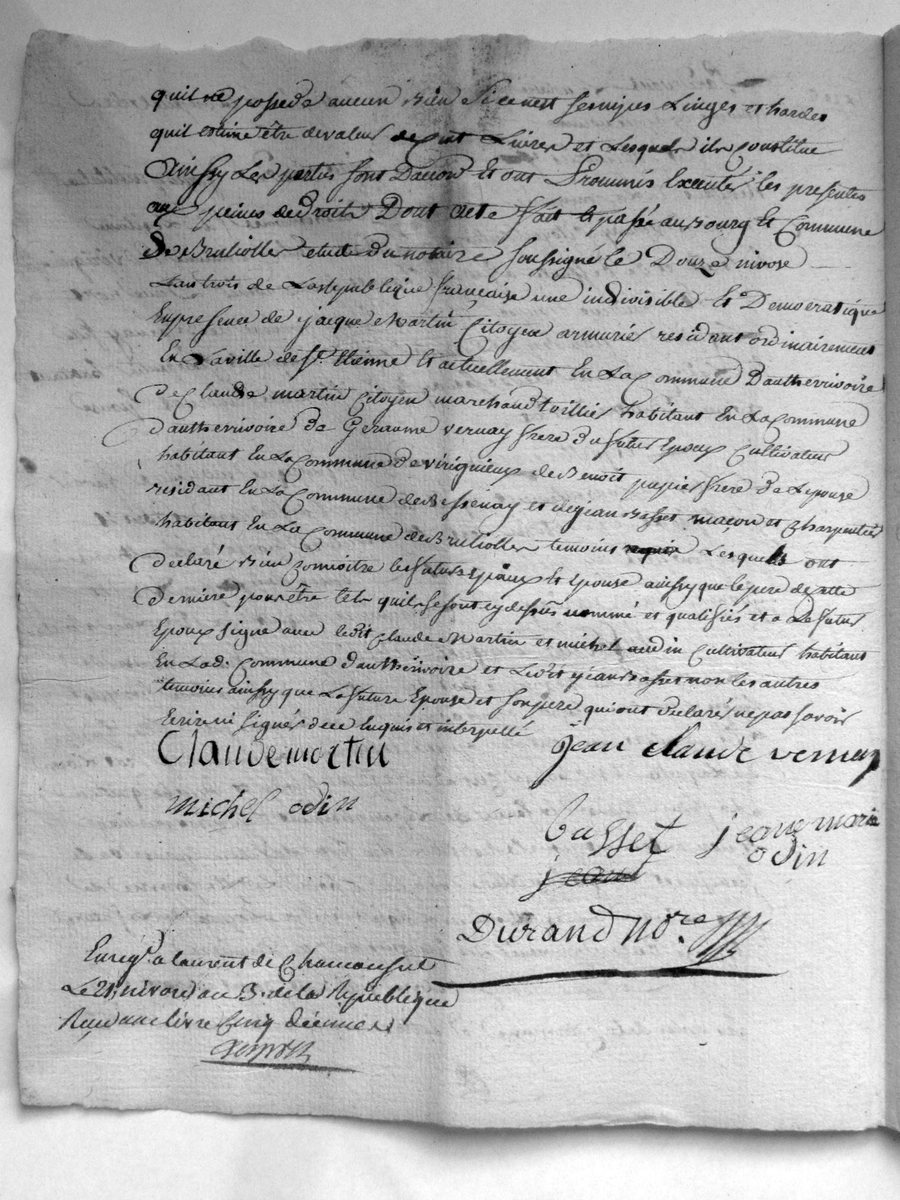 quil ne possede aucun bien si ce nest ses nipes Linges et hardes
quil estime être de valeur de cent Livres et Lesquels il se constitue
Ainssy Les parties sont Daccord et ont Prommis Executer les presentes
aux peines de droit Dont acte fait et passé au Bourg et Commune
de Brullioles etude du notaire soussigné le Douze nivose
Lan trois de La Republique francaise une indivisible et Democratique
En presence de jacque Martin Citoyen armurier residant ordinairement
En La ville de St. Etienne et actuellement En La Commune Dautherivoire
de Claude martin Citoyen marchand toillier habitant En La Commune
dautherivoire de Geraume vernay frere du futur Epoux Cultivateur
habitant En La Commune de virignieux de Benoit papier frere de Lepouse
residant En La Commune de Bessenay et de jean Basset maçon et charpentier
habitant En La Commune de Brullioles temoins Lesquels ont
declaré bien connoitre les futurs epoux et epouse ainssy que le pere de cette
derniere pour être tels quils se sont cy dessus nommé et qualifiés et a Le futur
Epoux signé avec ledit Claude Martin et michel audin Cultivateur habitant
En Lad. Commune dautherivoire et Ledit jean Basset non les autres
temoins ainssy que La future Epouse et son pere qui ont declarés ne pas savoir
Ecrire ni signer de ce Enquis et interpellé
Claude martin jean claude vernay
michel odin
basset jeane maria
jean odin
Durand Nore
Enregé. a laurent de Chamousset
Le 21. nivose an 3. de la Republique
Reçu une livre Cinq décimes